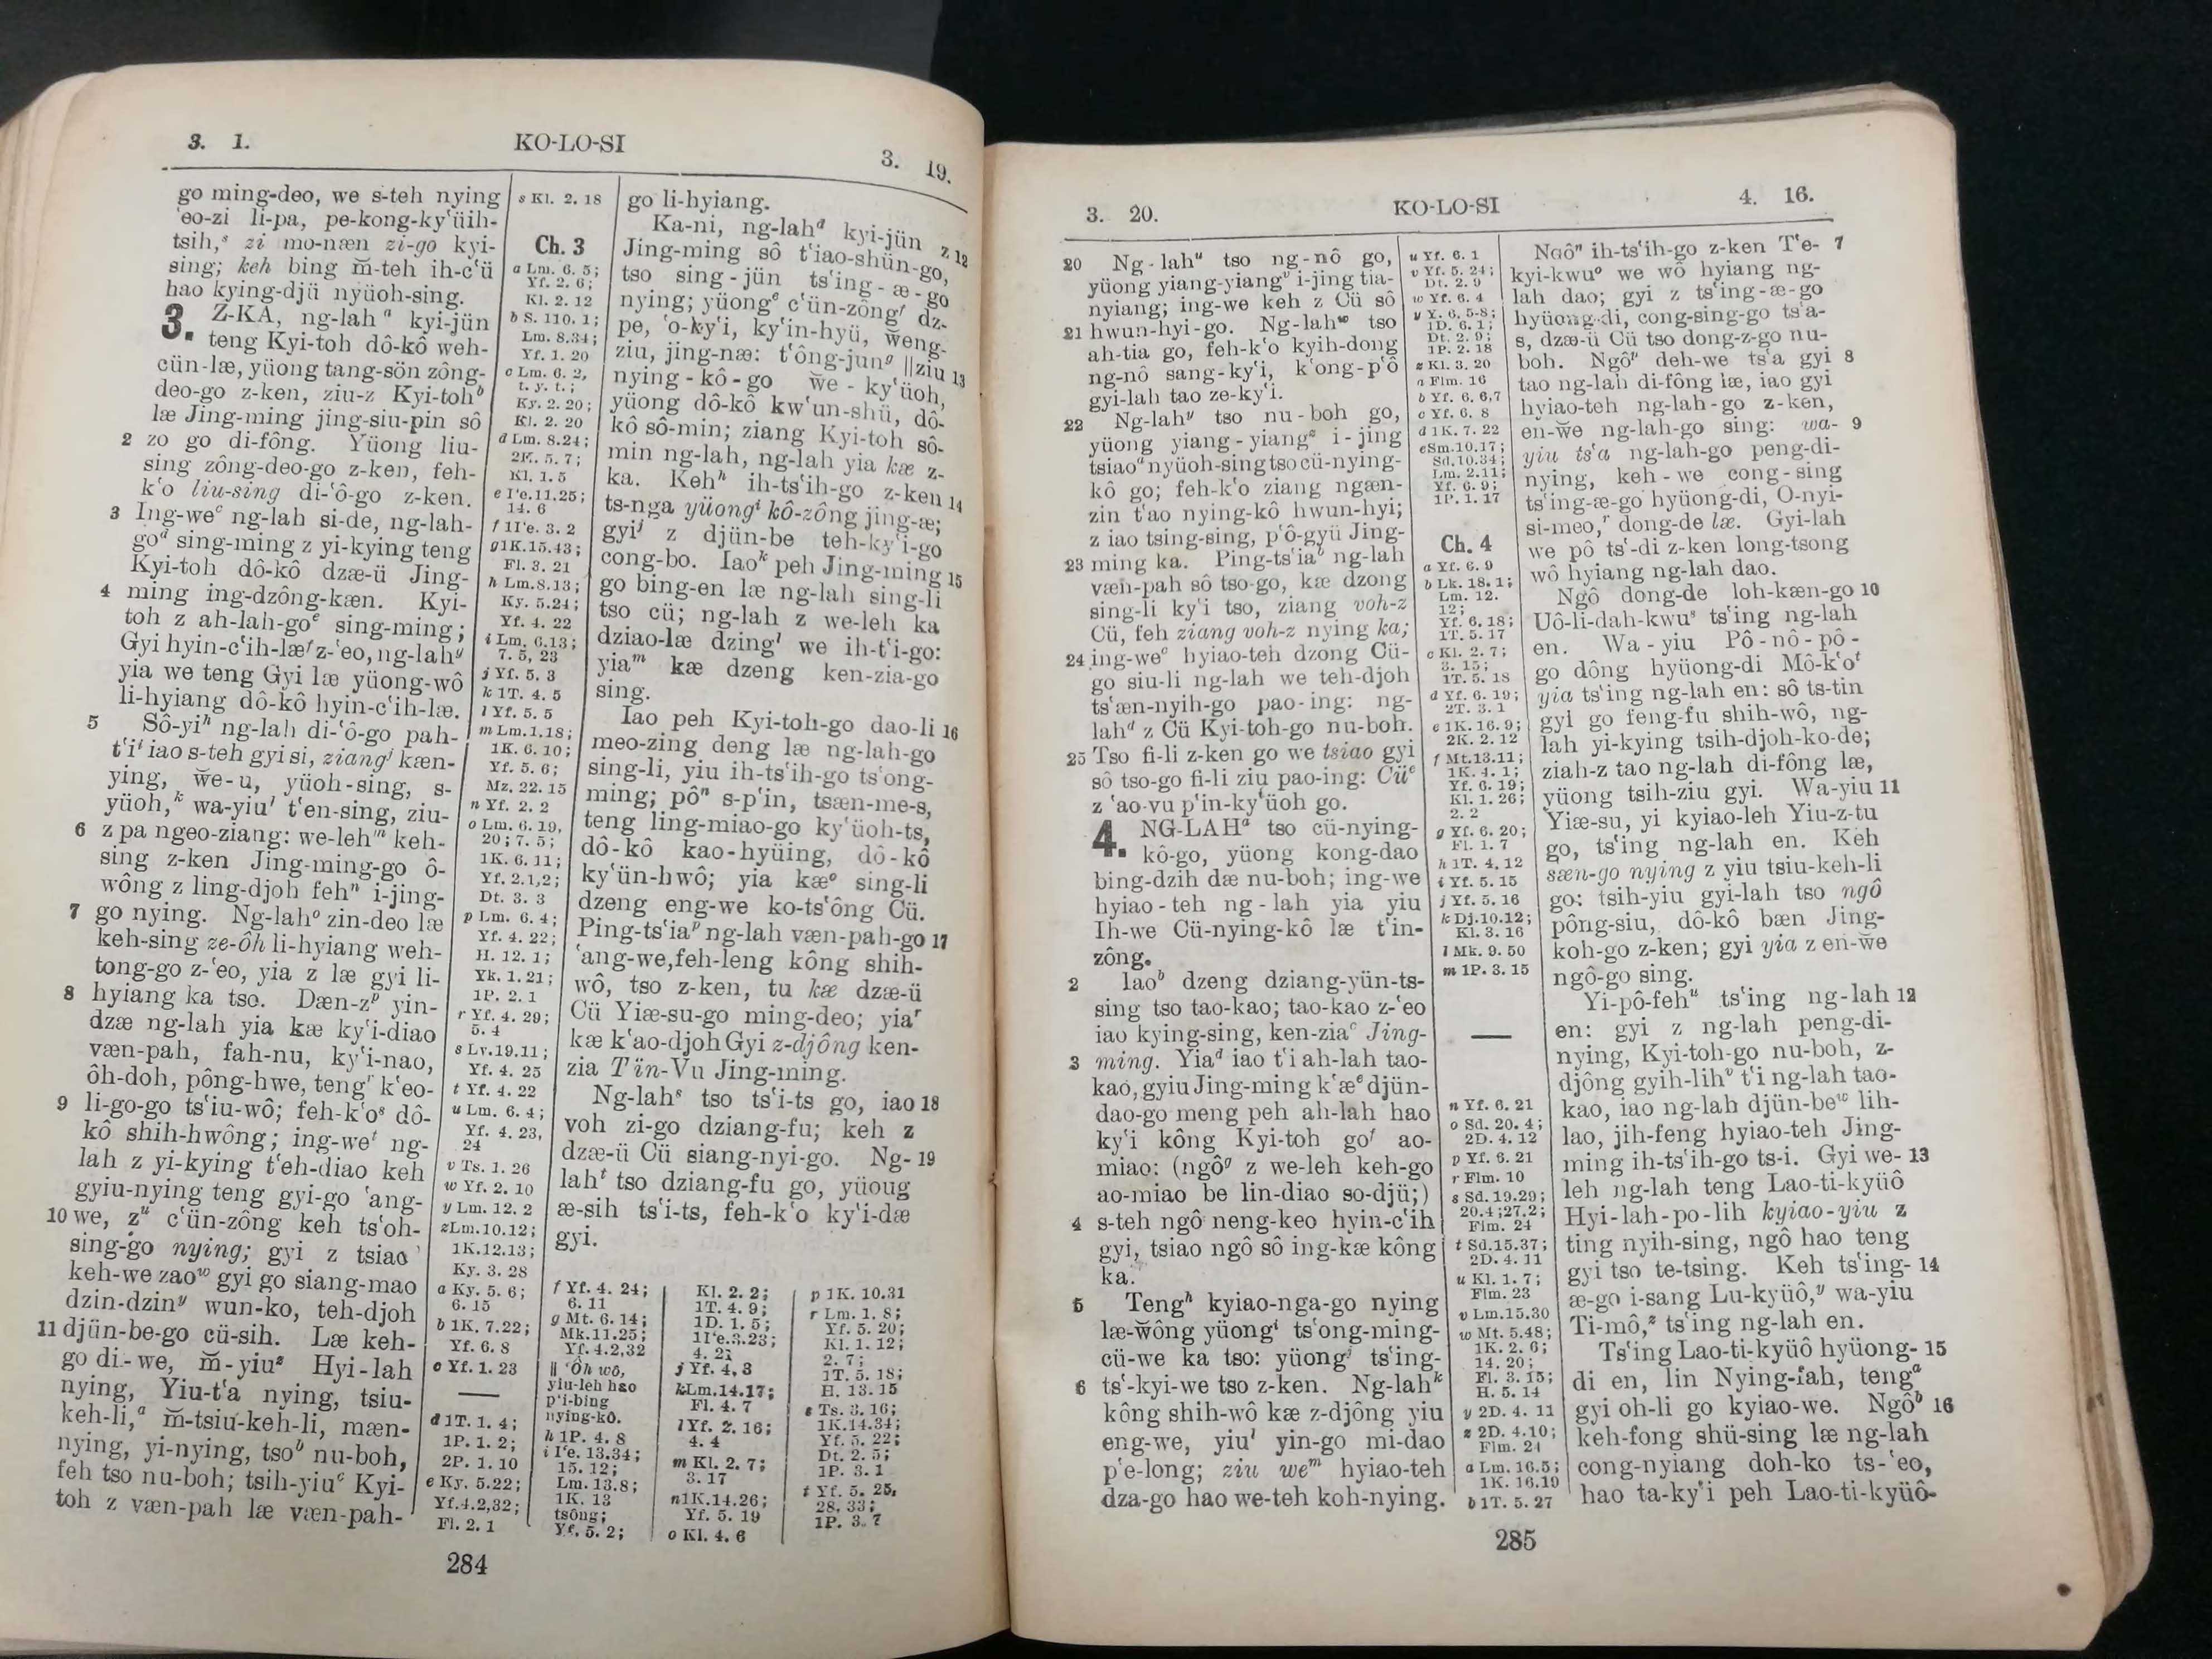 3. 1.
KO-LO-SI
3. 19.
go ming-deo, we s-teh nying
ʻeo-zi li-pa, pe-kong-kyʻüih-
tsih,ˢ zi mo-næn zi-go kyi-
sing; keh bing m̆-teh ih-cʻü
hao kying-djü nyüoh-sing.
3. Z-KA, ng-lahᵃ kyi-jün
teng Kyi-toh dô-kô weh-
cün-læ, yüong tang-sön zông-
deo-go z-ken, ziu-z Kyi-tohᵇ
læ Jing-ming jing-siu-pin sô
2 zo go di-fông. Yüong liu-
sing zông-deo-go z-ken, feh-
kʻo liu-sing di-ʻô-go z-ken.
3 Ing-weᶜ ng-lah si-de, ng-lah-
goᵈ sing-ming z yi-kying teng
Kyi-toh dô-kô dzæ-ü Jing-
4 ming ing-dzông-kæn. Kyi-
toh z ah-lah-goᵉ sing-ming;
Gyi hyin-cʻih-læᶠ z-ʻeo, ng-lahᵍ
yia we teng Gyi læ yüong-wô
li-hyiang dô-kô hyin-cʻih-læ.
5 Sô-yiʰ ng-lah di-ʻô-go pah-
tʻiⁱ iao s-teh gyi si, ziangʲ kæn-
ying, w̆e-u, yüoh-sing, s-
yüoh,ᵏ wa-yiuˡ tʻen-sing, ziu-
6 z pa ngeo-ziang: we-lehᵐ keh-
sing z-ken Jing-ming-go ô-
wông z ling-djoh fehⁿ i-jing-
7 go nying. Ng-lahᵒ zin-deo læ
keh-sing ze-ôh li-hyiang weh-
tong-go z-ʻeo, yia z læ gyi li-
8 hyiang ka tso. Dæn-zᵖ yin-
dzæ ng-lah yia kæ kyʻi-diao
væn-pah, fah-nu, kyʻi-nao,
ôh-doh, pông-hwe, tengʳ kʻeo-
9 li-go-go tsʻiu-wô; feh-kʻoˢ dô-
kô shih-hwông; ing-weᵗ ng-
lah z yi-kying tʻeh-diao keh
gyiu-nying teng gyi-go ʻang-
10 we, zᵘ cʻün-zông keh tsʻoh-
sing-go nying; gyi z tsiao
keh-we zaoʷ gyi go siang-mao
dzin-dzinʸ wun-ko, teh-djoh
11 djün-be-go cü-sih. Læ keh-
go di-we, m̆-yiuᶻ Hyi-lah
nying, Yiu-tʻa nying, tsiu-
keh-li,ᵃ m̆-tsiu-keh-li, mæn-
nying, yi-nying, tsoᵇ nu-boh,
feh tso nu-boh; tsih-yiuᶜ Kyi-
toh z væn-pah læ væn-pah-
s Kl. 2. 18
Ch. 3
a Lm. 6. 5;
Yf. 2. 6;
Kl. 2. 12
b S. 110. 1;
Lm. 8.34;
Yf. 1. 20
c Lm. 6. 2,
t. y. t.;
Ky. 2. 20;
Kl. 2. 20
d Lm. 8.24;
2K. 5. 7;
Kl. 1. 5
e Iʻe.11.25;
14. 6
f 1Iʻe. 3. 2
g1K.15.43;
Fl. 3. 21
h Lm.8.13;
Ky. 5.24;
Yf. 4. 22
i Lm. 6.13;
7. 5, 23
j Yf. 5. 3
k 1T. 4. 5
l Yf. 5. 5
m Lm.1.18;
1K. 6. 10;
Yf. 5. 6;
Mz. 22. 15
n Yf. 2. 2
o Lm. 6. 19,
20; 7. 5;
1K. 6. 11;
Yf. 2.1,2;
Dt. 3. 3
p Lm. 6. 4;
Yf. 4. 22;
H. 12. 1;
Yk. 1. 21;
1P. 2. 1
r Yf. 4. 29;
5. 4
s Lv.19.11;
Yf. 4. 25
t Yf. 4. 22
u Lm. 6. 4;
Yf. 4. 23,
24
v Ts. 1. 26
w Yf. 2. 10
y Lm. 12. 2
zLm.10.12;
1K.12.13;
Ky. 3. 28
a Ky. 5. 6;
6. 15
b 1K. 7.22;
Yf. 6. 8
c Yf. 1. 23
d 1T. 1. 4;
1P. 1. 2;
2P. 1. 10
e Ky. 5.22;
Yf.4.2,32;
Fl. 2. 1
go li-hyiang.
Ka-ni, ng-lahᵈ kyi-jün z 12
Jing-ming sô tʻiao-shün-go,
tso sing-jün tsʻing-æ-go
nying; yüongᵉ cʻün-zôngᶠ dz-
pe, ʻo-kyʻi, kyʻin-hyü, w̆eng-
ziu, jing-næ: tʻông-jungᵍ ‖ziu 13
nying-kô-go w̆e-kyʻüoh,
yüong dô-kô kwʻun-shü, dô-
kô sô-min; ziang Kyi-toh sô-
min ng-lah, ng-lah yia kæ z-
ka. Kehʰ ih-tsʻih-go z-ken 14
ts-nga yüongⁱ kô-zông jing-æ;
gyiʲ z djün-be teh-kyʻi-go
cong-bo. Iaoᵏ peh Jing-ming 15
go bing-en læ ng-lah sing-li
tso cü; ng-lah z we-leh ka
dziao-læ dzingˡ we ih-tʻi-go:
yiaᵐ kæ dzeng ken-zia-go
sing.
Iao peh Kyi-toh-go dao-li 16
meo-zing deng læ ng-lah-go
sing-li, yiu ih-tsʻih-go tsʻong-
ming; pôⁿ s-pʻin, tsæn-me-s,
teng ling-miao-go kyʻüoh-ts,
dô-kô kao-hyüing, dô-kô
kyʻün-hwô; yia kæᵒ sing-li
dzeng eng-we ko-tsʻông Cü.
Ping-tsʻiaᵖ ng-lah væn-pah-go 17
ʻang-we,feh-leng kông shih-
wô, tso z-ken, tu kæ dzæ-ü
Cü Yiæ-su-go ming-deo; yiaʳ
kæ kʻao-djoh Gyi z-djông ken-
zia Tʻin-Vu Jing-ming.
Ng-lahˢ tso tsʻi-ts go, iao 18
voh zi-go dziang-fu; keh z
dzæ-ü Cü siang-nyi-go. Ng- 19
lahᵗ tso dziang-fu go, yüoug
æ-sih tsʻi-ts, feh-kʻo kyʻi-dæ
gyi.
f Yf. 4. 24;
6. 11
g Mt. 6. 14;
Mk.11.25;
Yf.4.2,32
‖ ʻÔh wô,
yiu-leh hao
pʻi-bing
nying-kô.
h 1P. 4. 8
i Iʻe. 13.34;
15. 12;
Lm. 13.8;
1K. 13
tsông;
Yf. 5. 2;
Kl. 2. 2;
1T. 4. 9;
1D. 1. 5;
1Iʻe.3.23;
4. 21
j Yf. 4. 3
kLm.14.17;
Fl. 4. 7
lYf. 2. 16;
4. 4
m Kl. 2. 7;
3. 17
n1K.14.26;
Yf. 5. 19
o Kl. 4. 6
p 1K. 10.31
r Lm. 1. 8;
Yf. 5. 20;
Kl. 1. 12;
2. 7;
1T. 5. 18;
H. 13. 15
s Ts. 3. 16;
1K.14.34;
Yf. 5. 22;
Dt. 2. 5;
1P. 3. 1
t Yf. 5. 25,
28, 33;
1P. 3. 7
284
3. 20.
KO-LO-SI
4. 16.
20 Ng-lahᵘ tso ng-nô go,
yüong yiang-yiangᵛ i-jing tia-
nyiang; ing-we keh z Cü sô
21 hwun-hyi-go. Ng-lahʷ tso
ah-tia go, feh-kʻo kyih-dong
ng-nô sang-kyʻi, kʻong-pʻô
gyi-lah tao ze-kyʻi.
22 Ng-lahʸ tso nu-boh go,
yüong yiang-yiangᶻ i-jing
tsiaoᵃ nyüoh-sing tso cü-nying-
kô go; feh-kʻo ziang ngæn-
zin tʻao nying-kô hwun-hyi;
z iao tsing-sing, pʻô-gyü Jing-
23 ming ka. Ping-tsʻiaᵇ ng-lah
væn-pah sô tso-go, kæ dzong
sing-li kyʻi tso, ziang voh-z
Cü, feh ziang voh-z nying ka;
24 ing-weᶜ hyiao-teh dzong Cü-
go siu-li ng-lah we teh-djoh
tsʻæn-nyih-go pao-ing: ng-
lahᵈ z Cü Kyi-toh-go nu-boh.
25 Tso fi-li z-ken go we tsiao gyi
sô tso-go fi-li ziu pao-ing: Cüᵉ
z ʻao-vu pʻin-kyʻüoh go.
4. NG-LAHᵃ tso cü-nying-
kô-go, yüong kong-dao
bing-dzih dæ nu-boh; ing-we
hyiao-teh ng-lah yia yiu
Ih-we Cü-nying-kô læ tʻin-
zông.
2 Iaoᵇ dzeng dziang-yün-ts-
sing tso tao-kao; tao-kao z-ʻeo
iao kying-sing, ken-ziaᶜ Jing-
3 ming. Yiaᵈ iao tʻi ah-lah tao-
kao, gyiu Jing-ming kʻæᵉ djün-
dao-go meng peh ah-lah hao
kyʻi kông Kyi-toh goᶠ ao-
miao: (ngôᵍ z we-leh keh-go
ao-miao be lin-diao so-djü;)
4 s-teh ngô neng-keo hyin-cʻih
gyi, tsiao ngô sô ing-kæ kông
ka.
5 Tengʰ kyiao-nga-go nying
læ-w̆ông yüongⁱ tsʻong-ming-
cü-we ka tso: yüongʲ tsʻing-
6 tsʻ-kyi-we tso z-ken. Ng-lahᵏ
kông shih-wô kæ z-djông yiu
eng-we, yiuˡ yin-go mi-dao
pʻe-long; ziu weᵐ hyiao-teh
dza-go hao we-teh koh-nying.
u Yf. 6. 1
v Yf. 5. 24;
Dt. 2. 9
w Yf. 6. 4
y Y. 6. 5-8;
1D. 6. 1;
Dt. 2. 9;
1P. 2. 18
z Kl. 3. 20
a Flm. 16
b Yf. 6. 6,7
c Yf. 6. 8
d 1K. 7. 22
eSm.10.17;
Sd.10.34;
Lm. 2.11;
Yf. 6. 9;
1P. 1. 17
Ch. 4
a Yf. 6. 9
b Lk. 18. 1;
Lm. 12.
12;
Yf. 6.18;
1T. 5. 17
c Kl. 2. 7;
3. 15;
1T. 5. 18
d Yf. 6. 19;
2T. 3. 1
e 1K. 16. 9;
2K. 2. 12
f Mt.13.11;
1K. 4. 1;
Yf. 6. 19;
Kl. 1. 26;
2. 2
g Yf. 6. 20;
Fl. 1. 7
h 1T. 4. 12
i Yf. 5. 15
j Yf. 5. 16
k Dj.10.12;
Kl. 3. 16
l Mk. 9. 50
m 1P. 3. 15
n Yf. 6. 21
o Sd. 20. 4;
2D. 4. 12
p Yf. 6. 21
r Flm. 10
s Sd. 19.29;
20.4;27.2;
Flm. 24
t Sd.15.37;
2D. 4. 11
u Kl. 1. 7;
Flm. 23
v Lm.15.30
w Mt. 5.48;
1K. 2. 6;
14. 20;
Fl. 3. 15;
H. 5. 14
y 2D. 4. 11
z 2D. 4.10;
Flm. 24
a Lm. 16.5;
1K. 16.19
b 1T. 5. 27
NGÔⁿ ih-tsʻih-go z-ken Tʻe- 7
kyi-kwuᵒ we wô hyiang ng-
lah dao; gyi z tsʻing-æ-go
hyüong-di, cong-sing-go tsʻa-
s, dzæ-ü Cü tso dong-z-go nu-
boh. Ngôᵖ deh-we tsʻa gyi 8
tao ng-lah di-fông læ, iao gyi
hyiao-teh ng-lah-go z-ken,
en-w̆e ng-lah-go sing: wa- 9
yiu tsʻa ng-lah-go peng-di-
nying, keh-we cong-sing
tsʻing-æ-go hyüong-di, O-nyi-
si-meo,ʳ dong-de læ. Gyi-lah
we pô tsʻ-di z-ken long-tsong
wô hyiang ng-lah dao.
Ngô dong-de loh-kæn-go 10
Uô-li-dah-kwuˢ tsʻing ng-lah
en. Wa-yiu Pô-nô-pô-
go dông hyüong-di Mô-kʻoᵗ
yia tsʻing ng-lah en: sô ts-tin
gyi go feng-fu shih-wô, ng-
lah yi-kying tsih-djoh-ko-de;
ziah-z tao ng-lah di-fông læ,
yüong tsih-ziu gyi. Wa-yiu 11
Yiæ-su, yi kyiao-leh Yiu-z-tu
go, tsʻing ng-lah en. Keh
sæn-go nying z yiu tsiu-keh-li
go: tsih-yiu gyi-lah tso ngô
pông-siu, dô-kô bæn Jing-
koh-go z-ken; gyi yia z en-w̆e
ngô-go sing.
Yi-pô-fehᵘ tsʻing ng-lah 12
en: gyi z ng-lah peng-di-
nying, Kyi-toh-go nu-boh, z-
djông gyih-lihᵛ tʻi ng-lah tao-
kao, iao ng-lah djün-beʷ lih-
lao, jih-feng hyiao-teh Jing-
ming ih-tsʻih-go ts-i. Gyi we- 13
leh ng-lah teng Lao-ti-kyüô
Hyi-lah-po-lih kyiao-yiu z
ting nyih-sing, ngô hao teng
gyi tso te-tsing. Keh tsʻing- 14
æ-go i-sang Lu-kyüô,ʸ wa-yiu
Ti-mô,ᶻ tsʻing ng-lah en.
Tsʻing Lao-ti-kyüô hyüong- 15
di en, lin Nying-fah, tengᵃ
gyi oh-li go kyiao-we. Ngôᵇ 16
keh-fong shü-sing læ ng-lah
cong-nyiang doh-ko ts-ʻeo,
hao ta-kyʻi peh Lao-ti-kyüô-
285